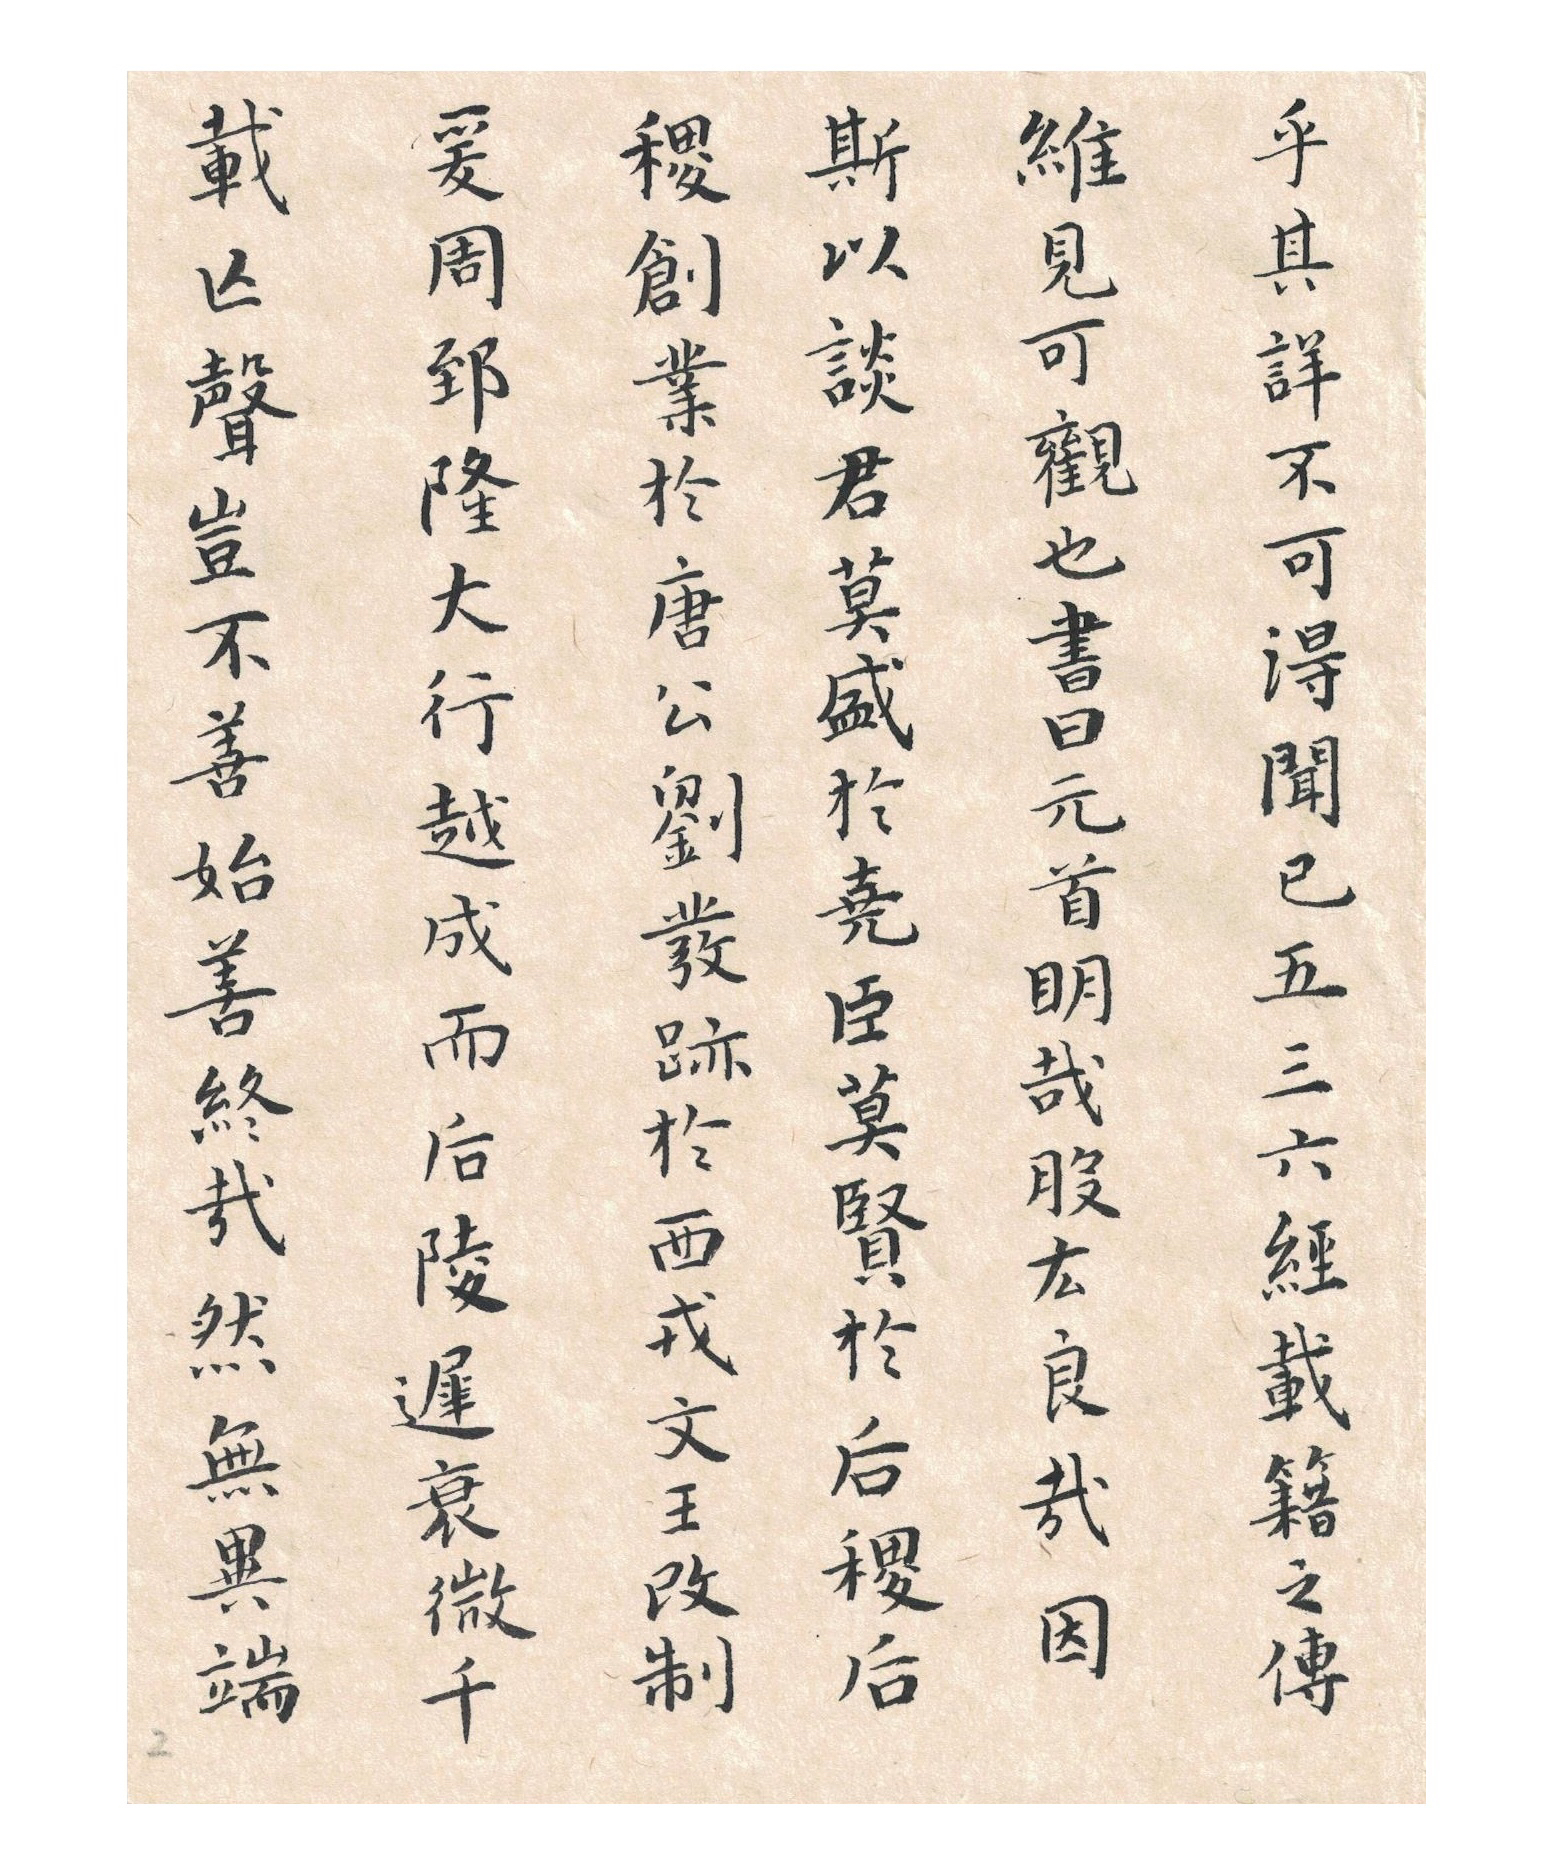 乎其詳不可淂聞已五三六經載籍之傳
維見可觀也書曰元首明哉股厷良哉因
斯以談君莫盛於堯臣莫賢於后稷后
稷創業於唐公劉發跡於西戎文王改制
爰周郅隆大行越成而后陵遲衰微千
載亾聲豈不善始善終哉然無異端
2